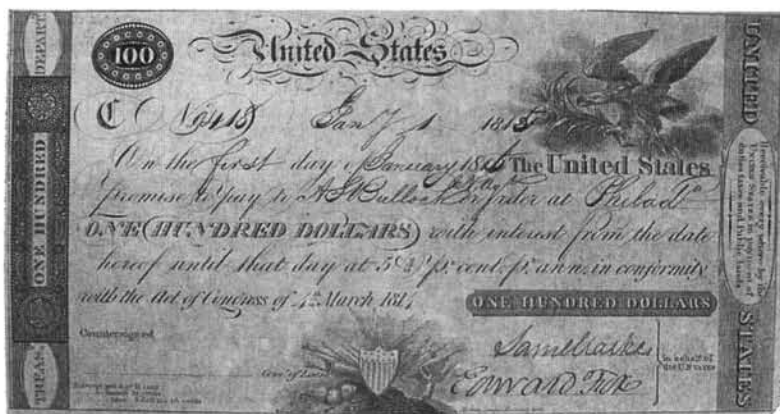 DEPART.
100
United States
C No 9418 Jany 1 1815
On the first day of January 1816 The United States
promise to pay to A S Bulloch or order at Philada
ONE (HUNDRED DOLLARS) with interest from the date
hereof until that day at 5⅖ pr. cent. pr. ann. in conformity
with the Act of Congress of 4th March 1814
ONE HUNDRED DOLLARS
Countersigned
Edward Fox
in behalf of
the U States
ONE HUNDRED
TREAS.
UNITED
Receivable every where by the
United States in payment of
duties taxes and Public lands
STATES